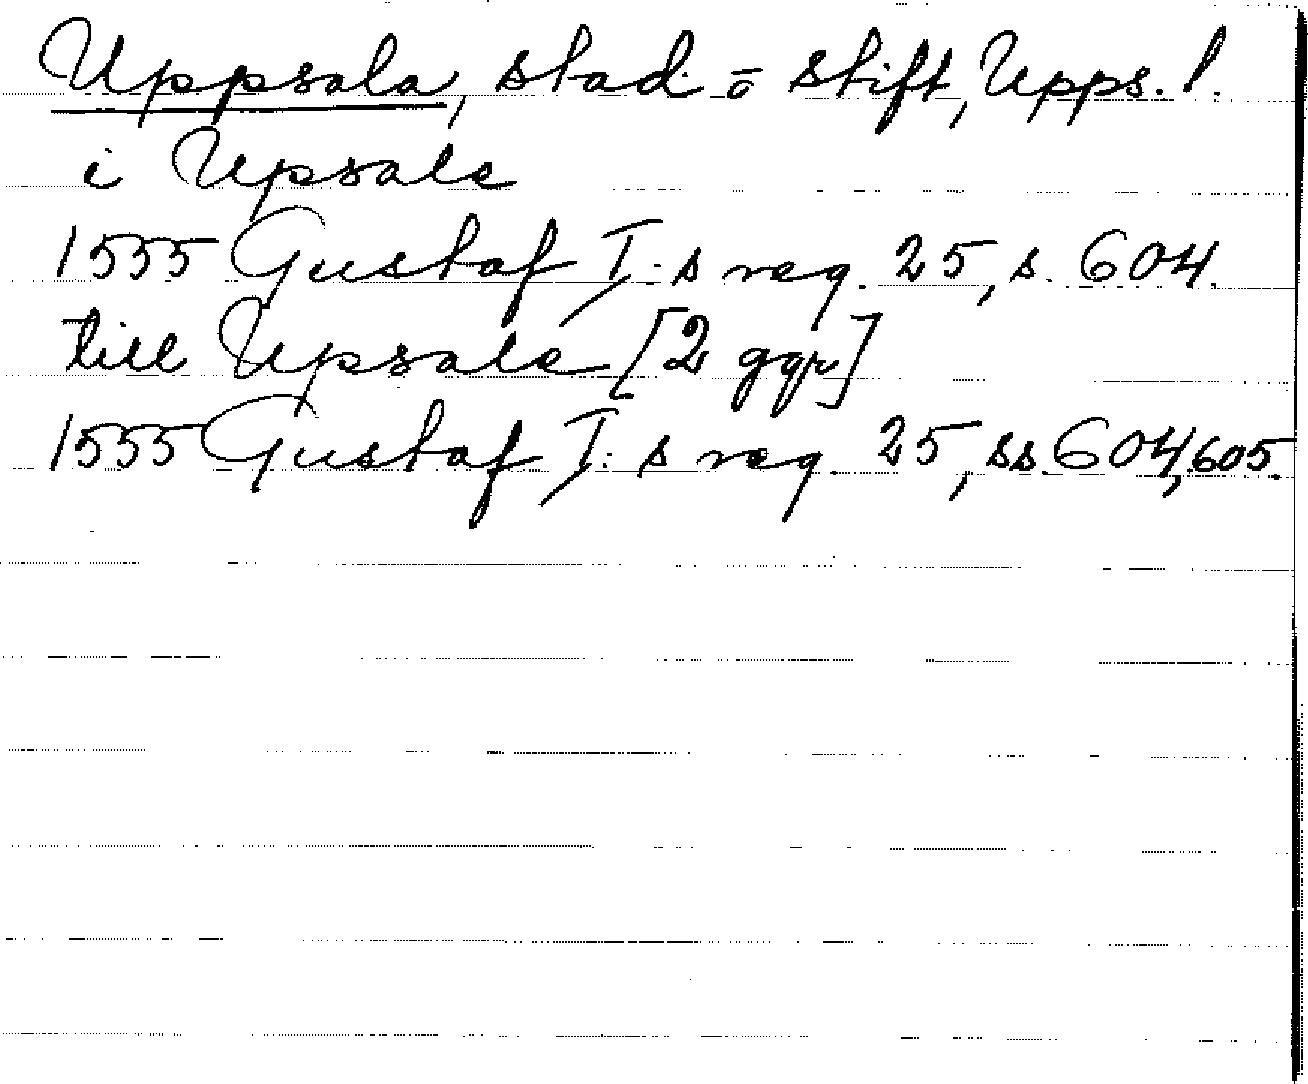 Uppsala, stad o stift, Upps. l.
i Upsala
1555 Gustaf I:s reg. 25, s. 604.
till Upsala [2 ggr]
1555 Gustaf I:s reg. 25, ss. 604, 605.